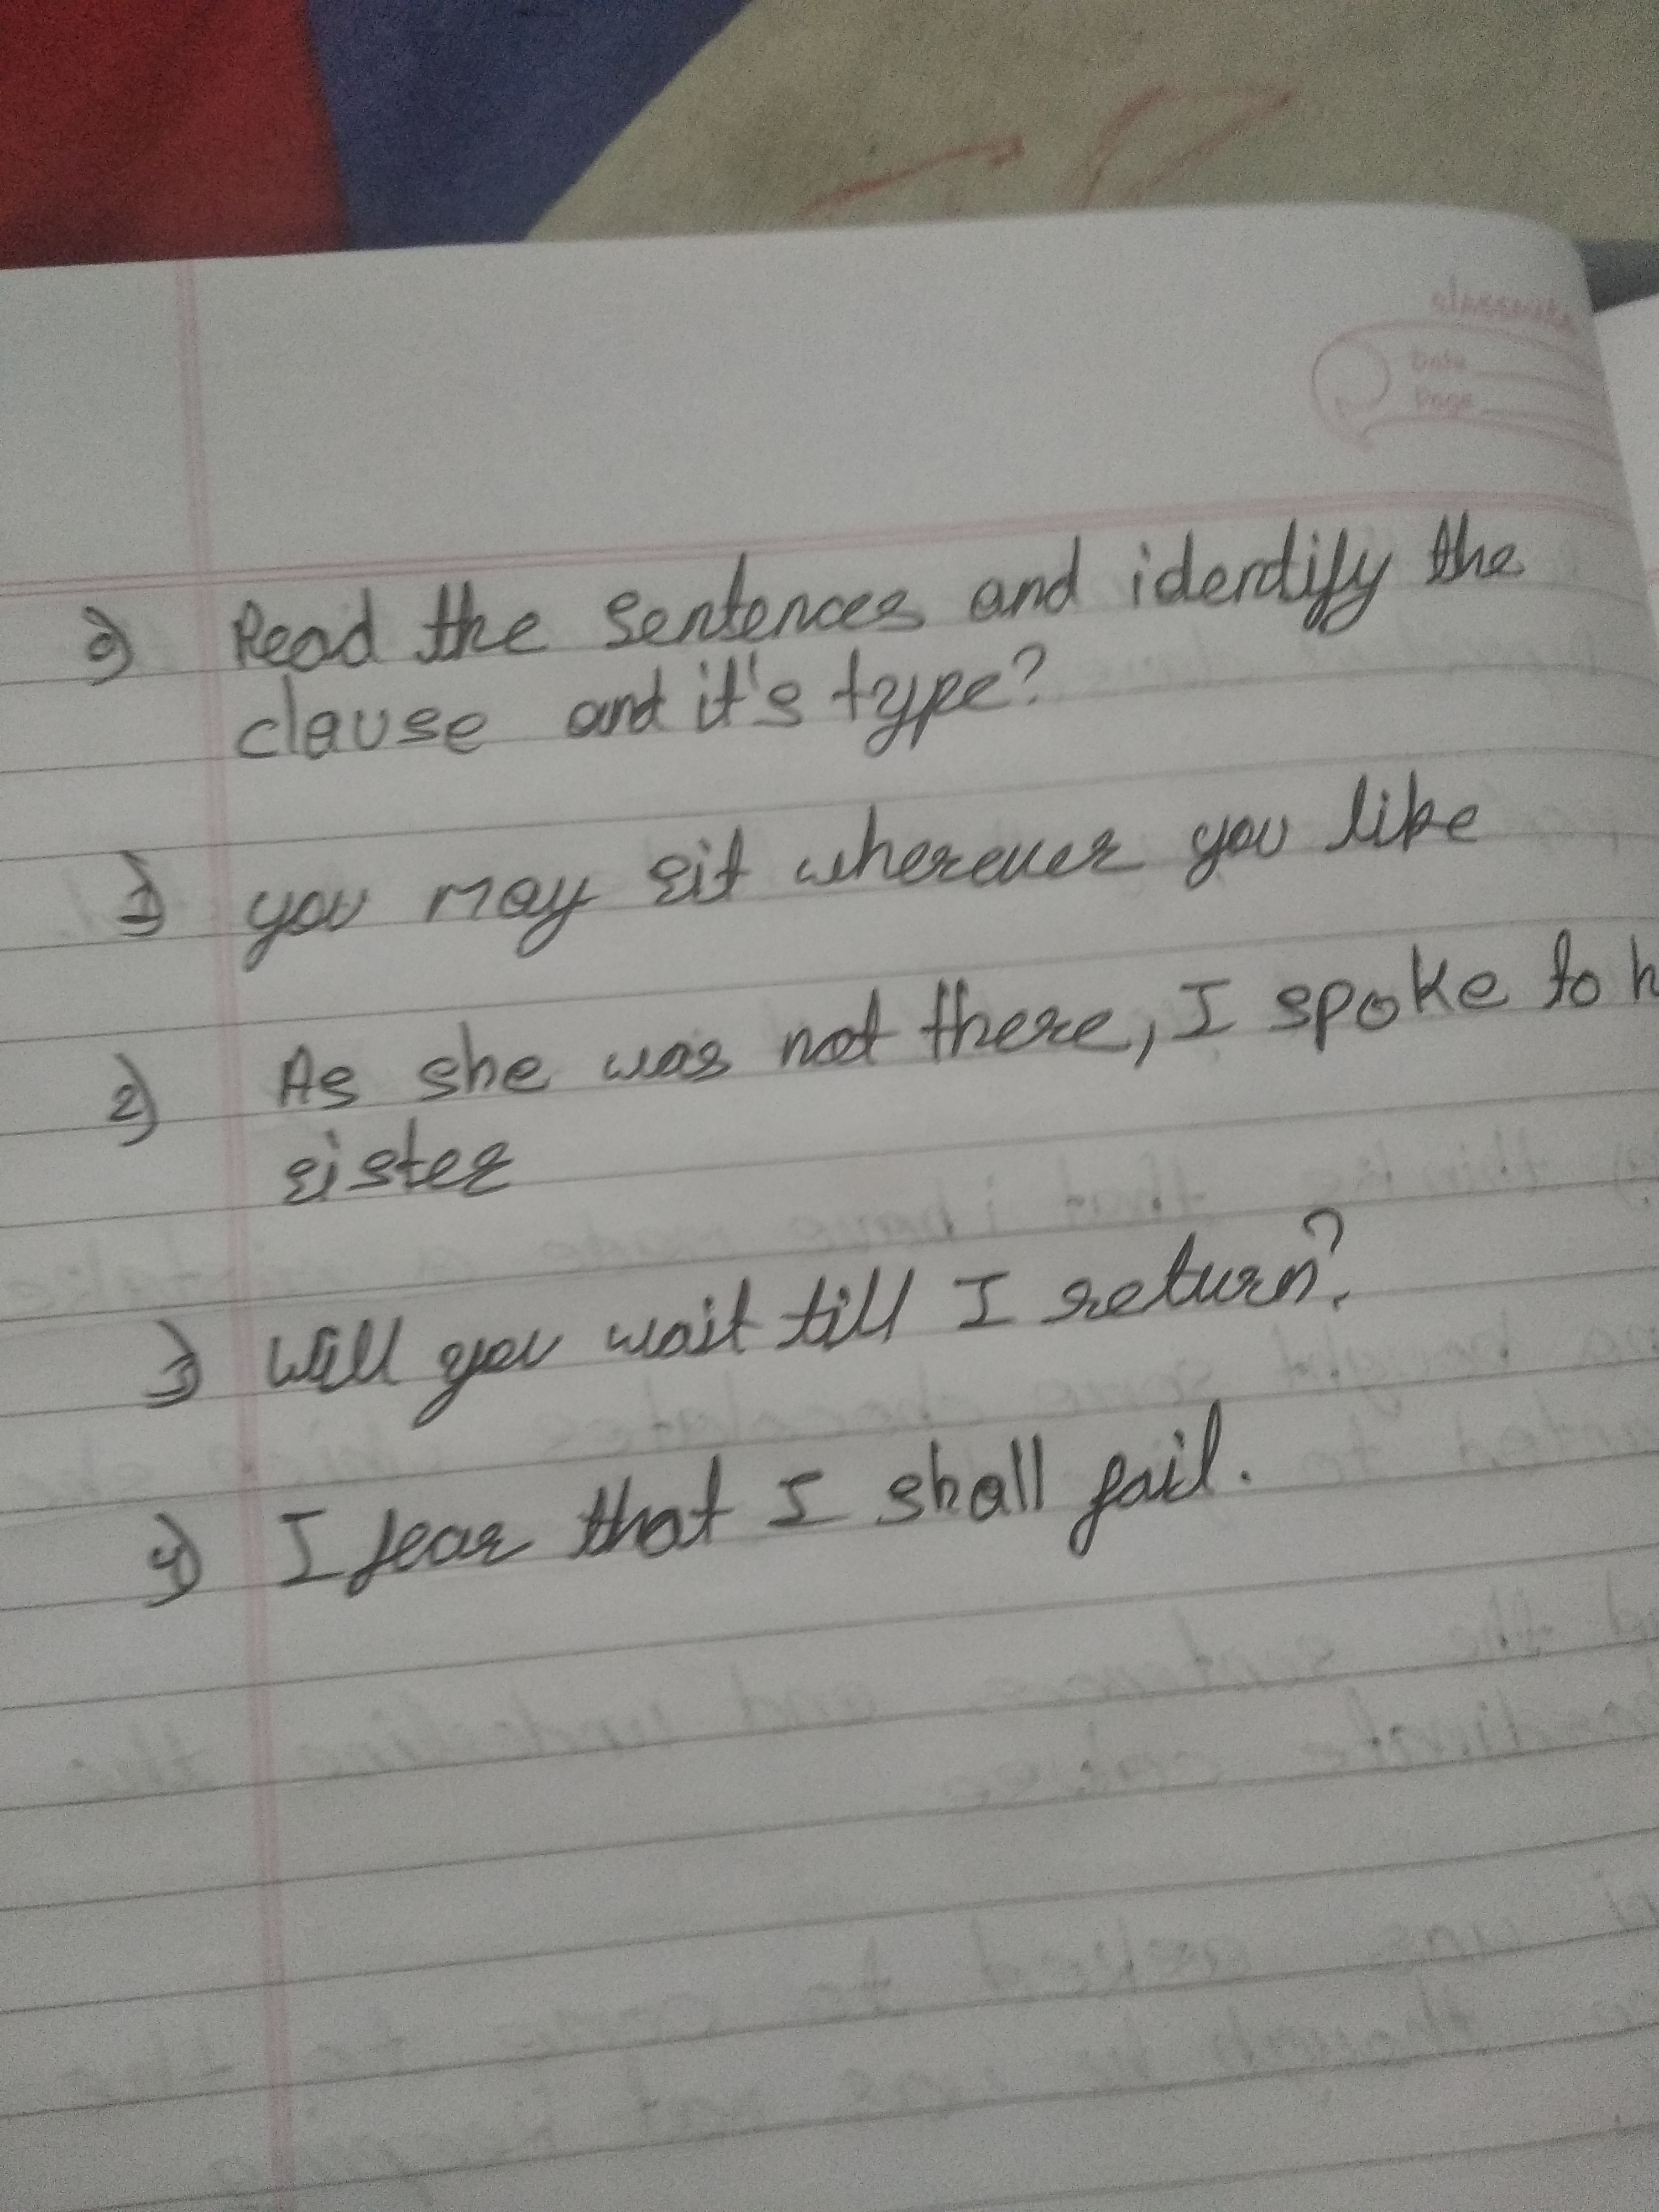 Q) Read the sentences and idendify the
clause and it's type?
1) you may sit wherever you like
2) As she was not there, I spoke to h
sister
3) Will you wait till I return?
4) I fear that I shall fail.
classmate
Date
Page